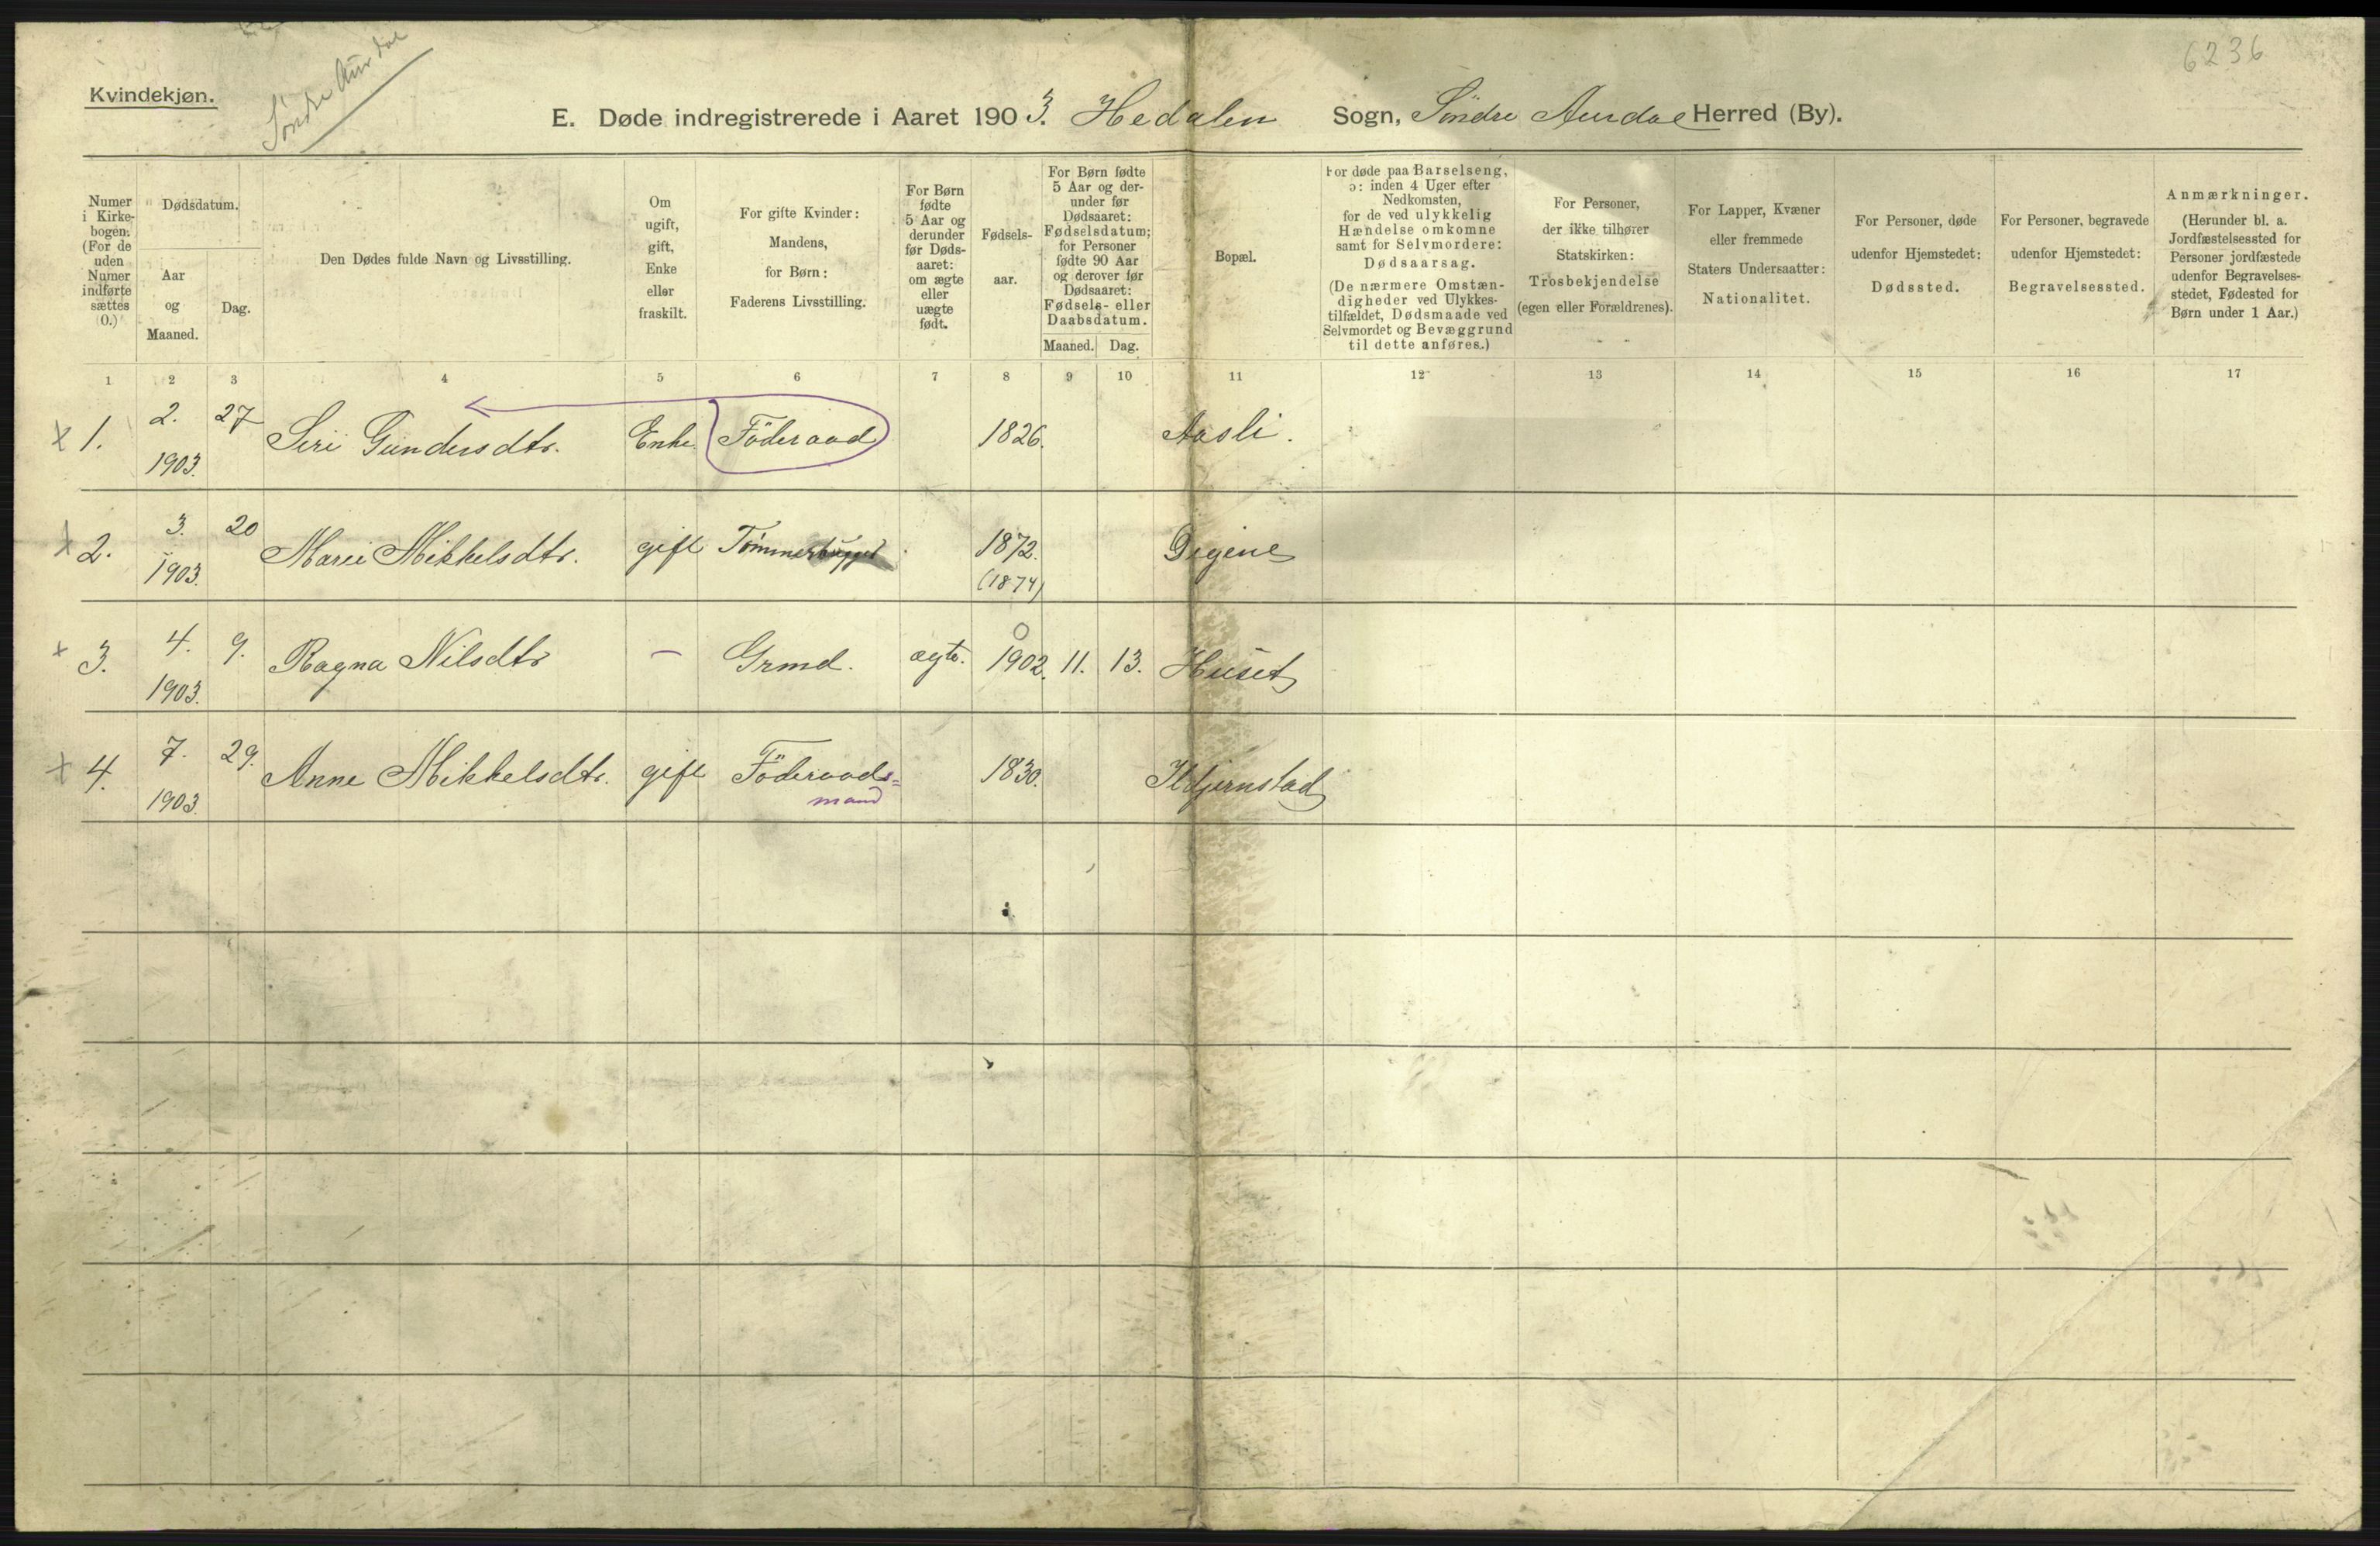 6236
Søndre Aurdal
Kvindekjøn.
E. Døde indregistrerede i Aaret 1903. Hedalen Sogn, Söndre Aurdal Herred (By).
Numer
i Kirke-
bogen.
(For de
uden
Numer
indførte
sættes
0.)
Dødsdatum.
Aar
og
Maaned.
Dag.
Den Dødes fulde Navn og Livsstilling.
Om
ugift,
gift,
Enke
eller
fraskilt.
For gifte Kvinder:
Mandens,
for Børn:
Faderens Livsstilling.
For Børn
fødte
5 Aar og
derunder
før Døds-
aaret:
om ægte
eller
uægte
født.
Fødsels-
aar.
For Børn fødte
5 Aar og der-
under før
Dødsaaret:
Fødselsdatum;
for Personer
fødte 90 Aar
og derover før
Dødsaaret:
Fødsels- eller
Daabsdatum.
Maaned. Dag.
Bopæl.
For døde paa Barselseng,
ɔ: inden 4 Uger efter
Nedkomsten,
for de ved ulykkelig
Hændelse omkomne
samt for Selvmordere:
Dødsaarsag.
(De nærmere Omstæn-
digheder ved Ulykkes-
tilfældet, Dødsmaade ved
Selvmordet og Bevæggrund
til dette anføres.)
For Personer,
der ikke tilhører
Statskirken:
Trosbekjendelse
(egen eller Forældrenes).
For Lapper, Kvæner
eller fremmede
Staters Undersaatter:
Nationalitet.
For Personer, døde
udenfor Hjemstedet:
Dødssted.
For Personer, begravede
udenfor Hjemstedet:
Begravelsessted.
Anmærkninger.
(Herunder bl. a.
Jordfæstelsessted for
Personer jordfæstede
udenfor Begravelses-
stedet, Fødested for
Børn under 1 Aar.)
1 2 3 4 5 6 7 8 9 10 11 12 13 14 15 16 17
x 1. 2. 27 Siri Gundersdtr. Enke Föderaad 1826. Aasli.
1903.
x 2. 3. 20 Marie Mikkelsdtr. gift Tömmerhugger 1872.
1903. (1874)
x 3. 4. 9. Ragna Nilsdtr — Grmd. ægte. 1902. 11. 13. Huset
1903.
x 4. 7. 29. Anne Mikkelsdtr. gift Föderaads= 1830.
1903. mand